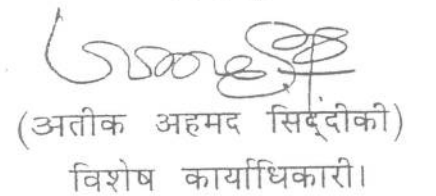 (अतीक अहमद सिद्दंीकी)
विशेष कार्याधिकारी।